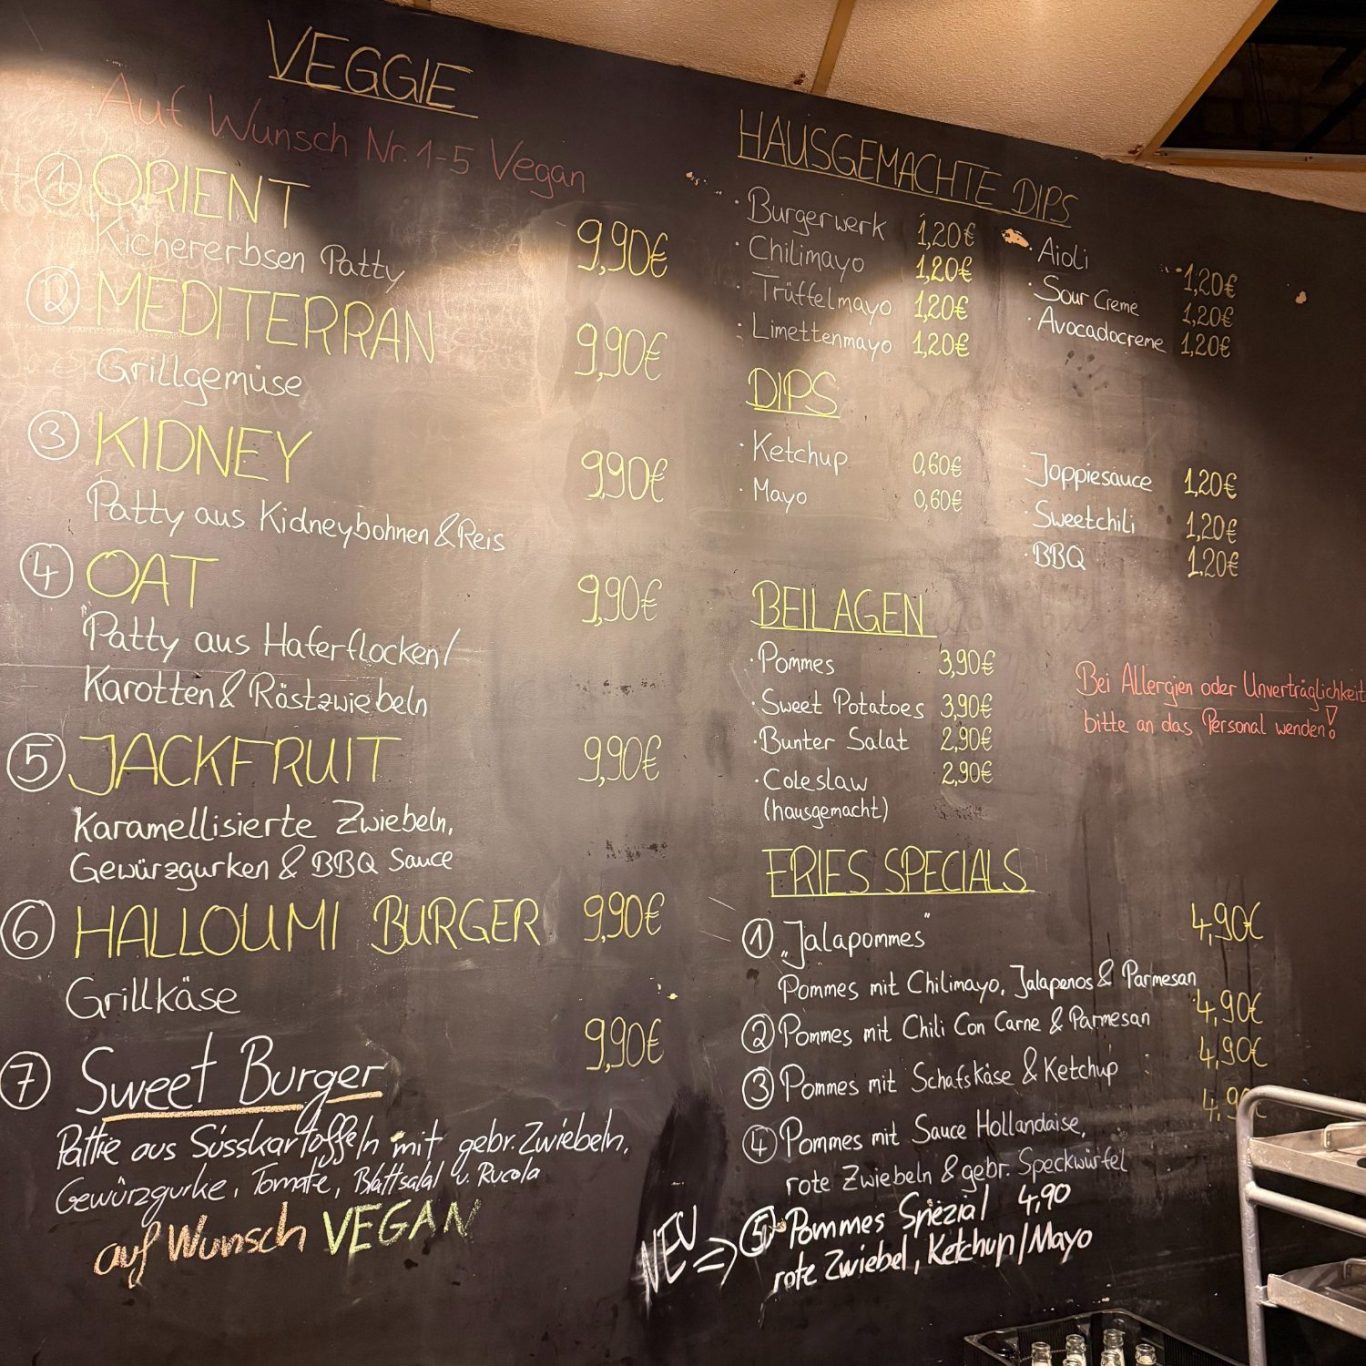 VEGGIE
Auf Wunsch Nr. 1-5 Vegan
① ORIENT 9,90€
Kichererbsen Patty
② MEDITERRAN 9,90€
Grillgemüse
③ KIDNEY 9,90€
Patty aus Kidneybohnen & Reis
④ OAT 9,90€
Patty aus Haferflocken/
Karotten & Röstzwiebeln
⑤ JACKFRUIT 9,90€
Karamellisierte Zwiebeln,
Gewürzgurken & BBQ Sauce
⑥ HALLOUMI BURGER 9,90€
Grillkäse
⑦ Sweet Burger 9,90€
Pattie aus Süsskartoffeln mit gebr. Zwiebeln,
Gewürzgurke, Tomate, Blattsalat u. Rucola
auf Wunsch VEGAN
HAUSGEMACHTE DIPS
· Burgerwerk 1,20€
· Chilimayo 1,20€
· Trüffelmayo 1,20€
· Limettenmayo 1,20€
· Aioli 1,20€
· Sour Creme 1,20€
· Avocadocreme 1,20€
DIPS
· Ketchup 0,60€
· Mayo 0,60€
· Joppiesauce 1,20€
· Sweetchili 1,20€
· BBQ 1,20€
BEILAGEN
· Pommes 3,90€
· Sweet Potatoes 3,90€
· Bunter Salat 2,90€
· Coleslaw 2,90€
(hausgemacht)
Bei Allergien oder Unverträglichkeit
bitte an das Personal wenden!
FRIES SPECIALS
① „Jalapommes" 4,90€
Pommes mit Chilimayo, Jalapenos & Parmesan
② Pommes mit Chili Con Carne & Parmesan 4,90€
③ Pommes mit Schafskäse & Ketchup 4,90€
④ Pommes mit Sauce Hollandaise,
rote Zwiebeln & gebr. Speckwürfel
NEU => ⑤ Pommes Spezial 4,90
rote Zwiebel, Ketchup/Mayo